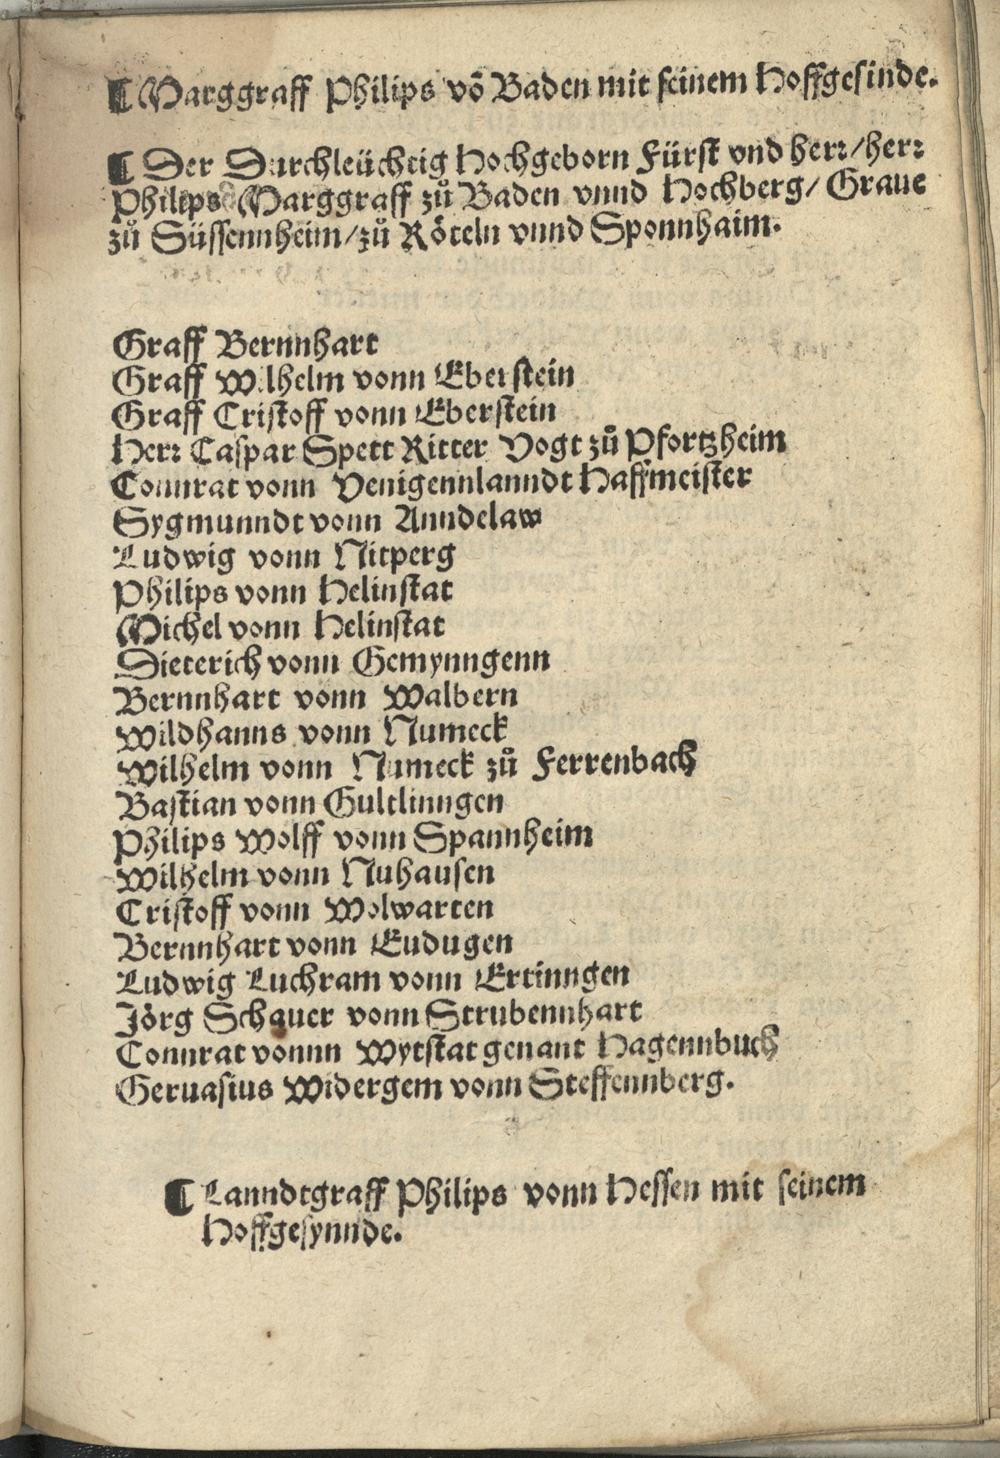 ¶ Marggraff Philips võ Baden mit seinem Hoffgesinde.
¶ Der Durchleüchtig Hochgeborn Fürst vnd herr/herr
Philips Marggraff zů Baden vnnd Hochberg/ Graue
zů Süssennheim/zů Röteln vnnd Sponnhaim.
Graff Bernnhart
Graff Wilhelm vonn Eberstein
Graff Cristoff vonn Eberstein
Herr Caspar Spett Ritter Vogt zů Pfortzheim
Connrat vonn Venigennlanndt Haffmeister
Sygmunndt vonn Anndelaw
Ludwig vonn Nitperg
Philips vonn Helinstat
Michel vonn Helinstat
Dieterich vonn Gemynngenn
Bernnhart vonn Walbern
Wildhanns vonn Numeck
Wilhelm vonn Numeck zů Ferrenbach
Bastian vonn Gultlinngen
Philips Wolff vonn Spannheim
Wilhelm vonn Nuhausen
Cristoff vonn Wolwarten
Bernnhart vonn Eudugen
Ludwig Luchram vonn Ertinngen
Jörg Schauer vonn Strubennhart
Connrat vonnn Wytstat genant Hagennbuch
Geruasius Widergem vonn Steffennberg.
¶ Lanndtgraff Philips vonn Hessen mit seinem
Hoffgesynnde.